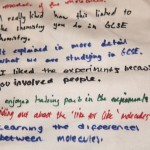 I really liked how this linked to
the chemistry you do in GCSE
chemistry.
It explained in more detail
what we are studying in GCSE.
I liked the experiments because
you involved people.
enjoyed taking part in the experiments
out about the 'like for like' molecules
Learning the differences
between molecules.